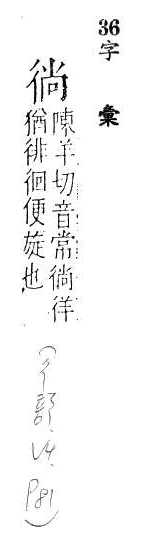 36字 彙
徜
陳羊切音常徜徉
猶徘徊便旋也
(彳部. 八. P.81)